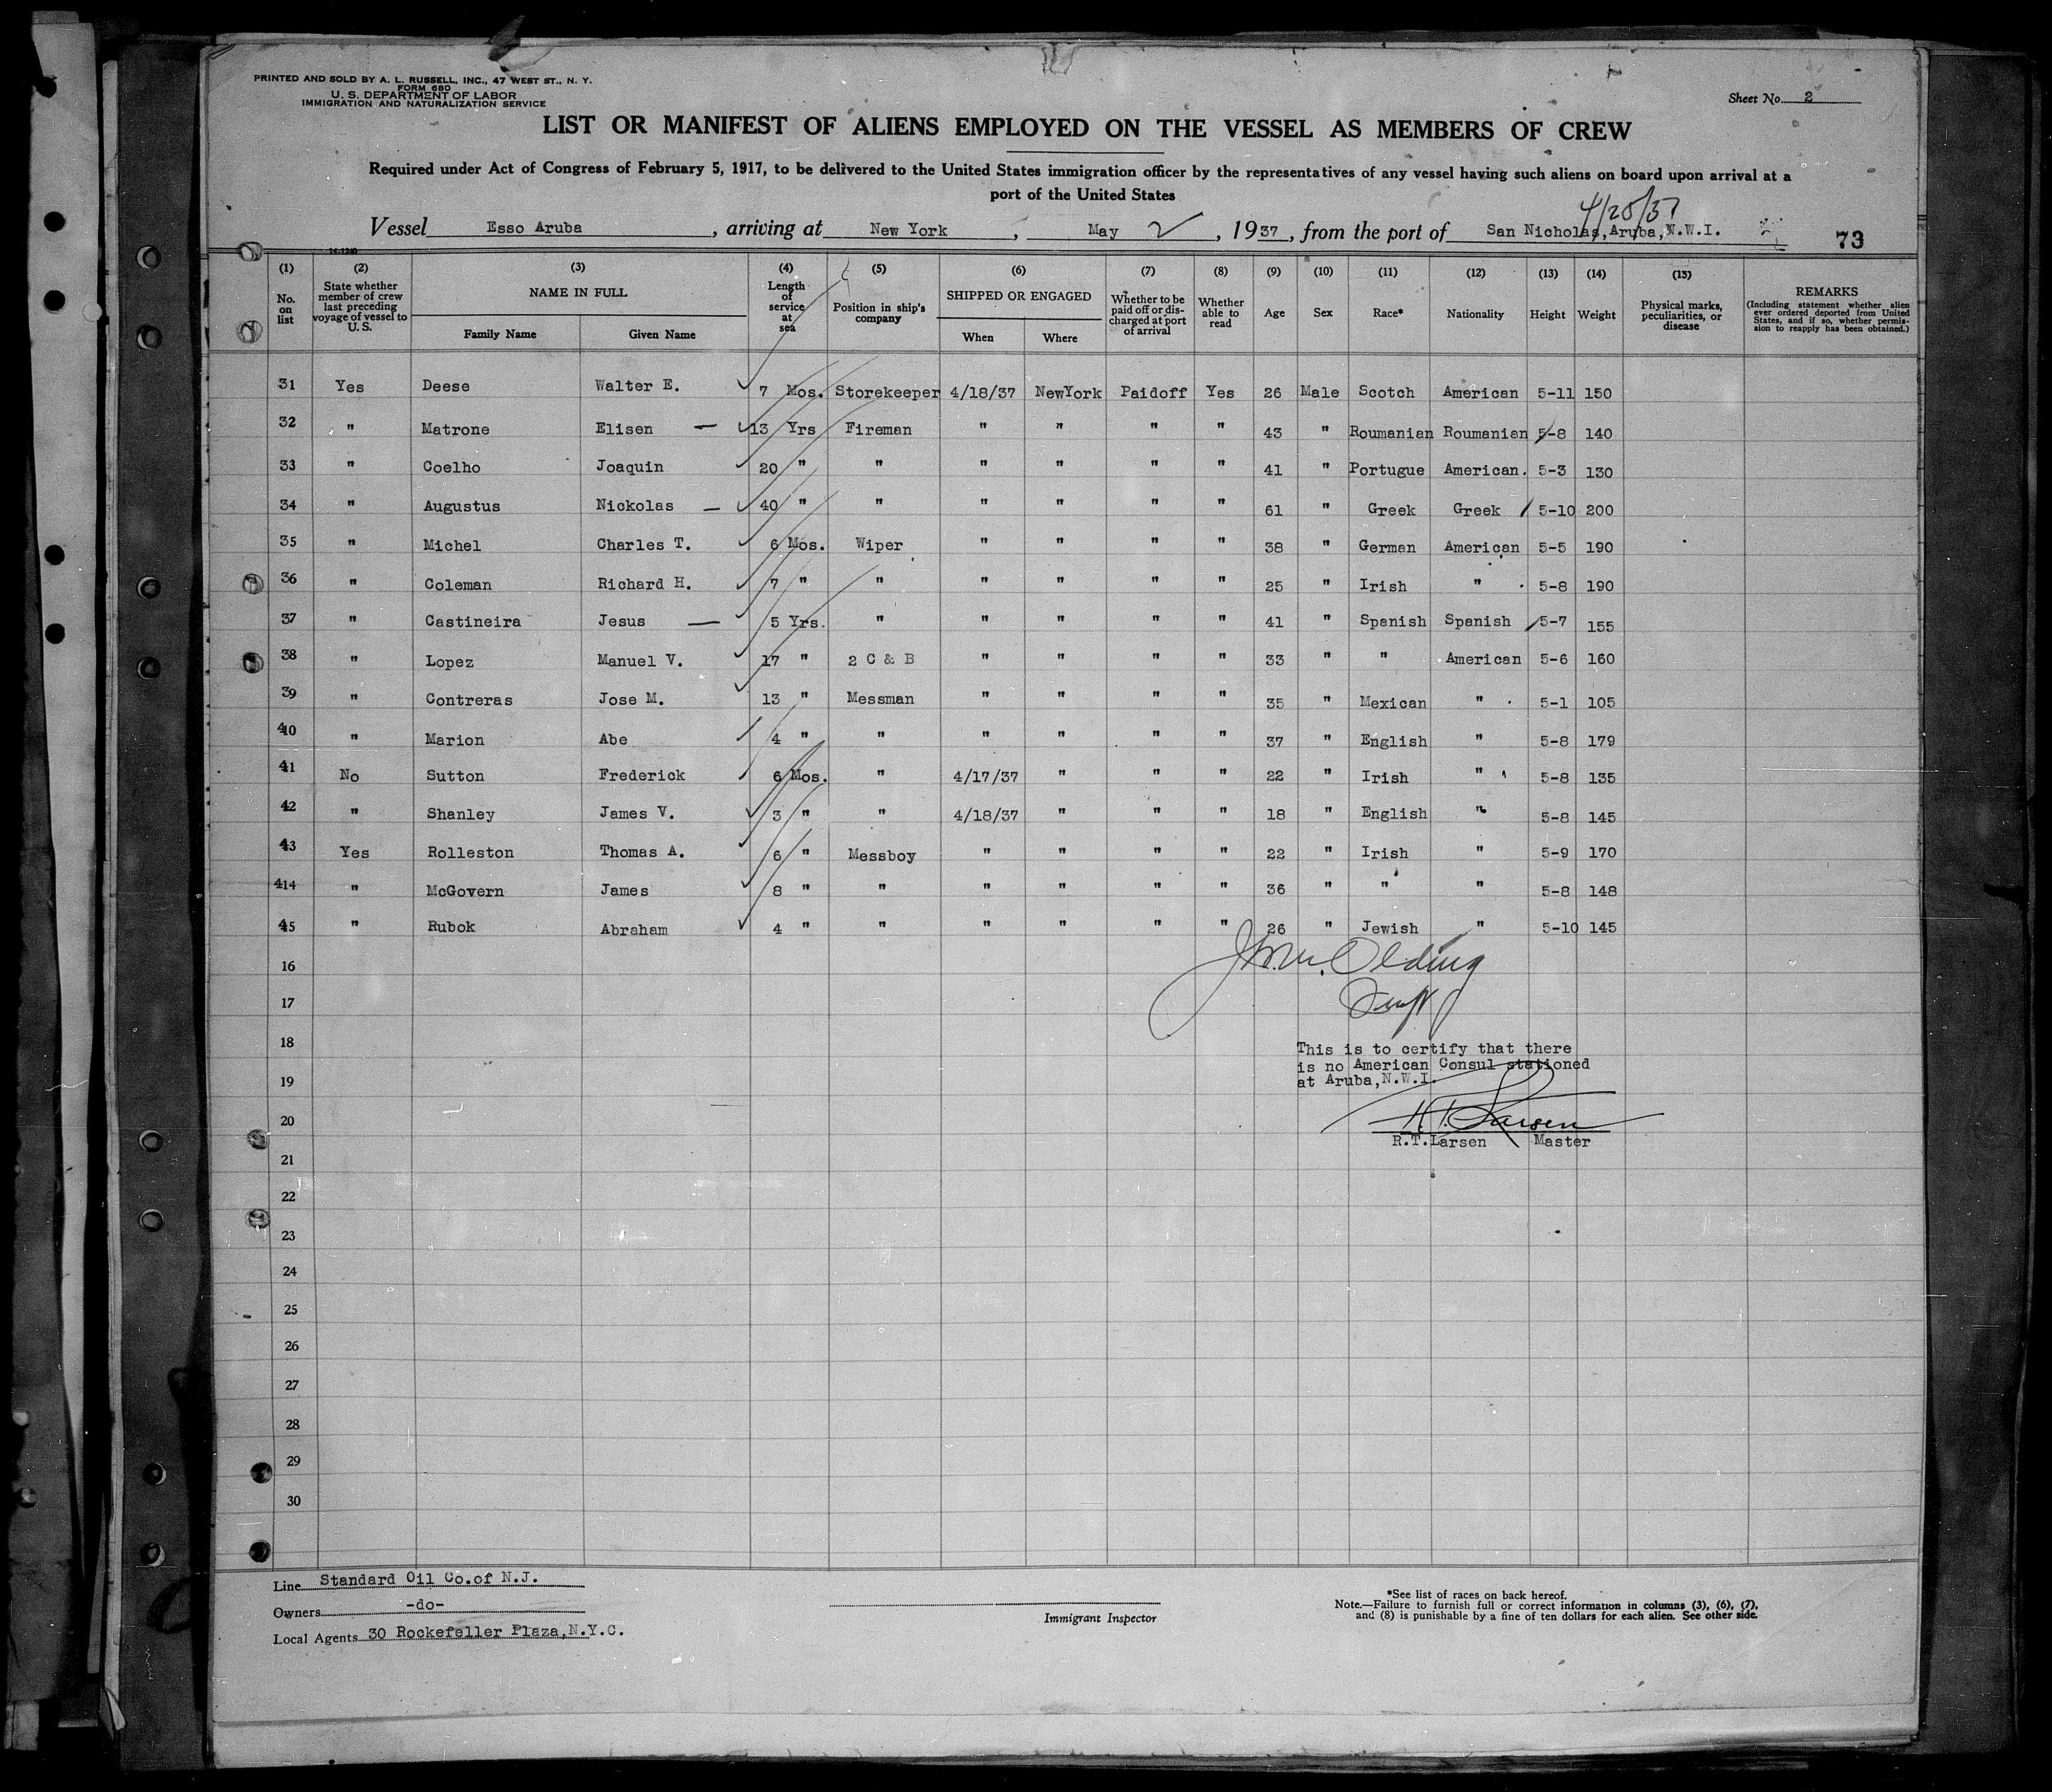 PRINTED AND SOLD BY A. L. RUSSELL, INC., 47 WEST ST., N. Y.
FORM 680
U. S. DEPARTMENT OF LABOR
IMMIGRATION AND NATURALIZATION SERVICE
Sheet No. 2
LIST OR MANIFEST OF ALIENS EMPLOYED ON THE VESSEL AS MEMBERS OF CREW
Required under Act of Congress of February 5, 1917, to be delivered to the United States immigration officer by the representatives of any vessel having such aliens on board upon arrival at a
port of the United States
4/25/37
Vessel Esso Aruba, arriving at New York, May 2, 1937, from the port of San Nicholas, Aruba, N.W.I. 73
(1) (2) (3) (4) (5) (6) (7) (8) (9) (10) (11) (12) (13) (14) (15)
No. on list State whether member of crew last preceding voyage of vessel to U. S. NAME IN FULL Family Name Given Name Length of service at sea Position in ship's company SHIPPED OR ENGAGED When Where Whether to be paid off or discharged at port of arrival Whether able to read Age Sex Race* Nationality Height Weight Physical marks, peculiarities, or disease REMARKS (Including statement whether alien ever ordered deported from United States, and if so, whether permission to reapply has been obtained.)
31 Yes Deese Walter E. 7 Mos. Storekeeper 4/18/37 NewYork Paidoff Yes 26 Male Scotch American 5-11 150
32 " Matrone Elisen — 13 Yrs Fireman " " " " 43 " Roumanian Roumanian 5-8 140
33 " Coelho Joaquin 20 " " " " " " 41 " Portugue American. 5-3 130
34 " Augustus Nickolas — 40 " " " " " " 61 " Greek Greek 5-10 200
35 " Michel Charles T. 6 Mos. Wiper " " " " 38 " German American 5-5 190
36 " Coleman Richard H. 7 " " " " " " 25 " Irish " 5-8 190
37 " Castineira Jesus — 5 Yrs. " " " " " 41 " Spanish Spanish 5-7 155
38 " Lopez Manuel V. 17 " 2 C & B " " " " 33 " " American 5-6 160
39 " Contreras Jose M. 13 " Messman " " " " 35 " Mexican " 5-1 105
40 " Marion Abe 4 " " " " " " 37 " English " 5-8 179
41 No Sutton Frederick 6 Mos. " 4/17/37 " " " 22 " Irish " 5-8 135
42 " Shanley James V. 3 " " 4/18/37 " " " 18 " English " 5-8 145
43 Yes Rolleston Thomas A. 6 " Messboy " " " " 22 " Irish " 5-9 170
414 " McGovern James 8 " " " " " " 36 " " " 5-8 148
45 " Rubok Abraham 4 " " " " " " 26 " Jewish " 5-10 145
16
17
18
19
20
21
22
23
24
25
26
27
28
29
30
This is to certify that there
is no American Consul stationed
at Aruba, N.W.I.
R.T. Larsen
R.T.Larsen Master
Line Standard Oil Co.of N.J.
Owners -do-
Local Agents 30 Rockefeller Plaza,N.Y.C.
Immigrant Inspector
*See list of races on back hereof.
Note.—Failure to furnish full or correct information in columns (3), (6), (7),
and (8) is punishable by a fine of ten dollars for each alien. See other side.